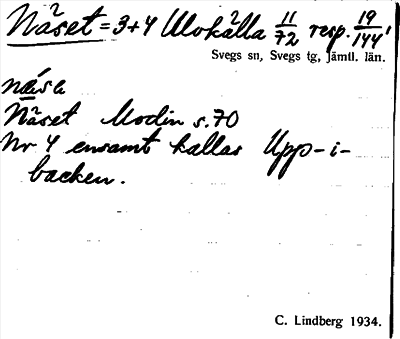 Näset = 3+4 Ulvkälla 11/72 resp. 19/144
Svegs sn, Svegs tg, Jämtl. län.
Näset Modin s.70
Nr 4 ensamt kallas Upp-i-
backen.
C. Lindberg 1934.